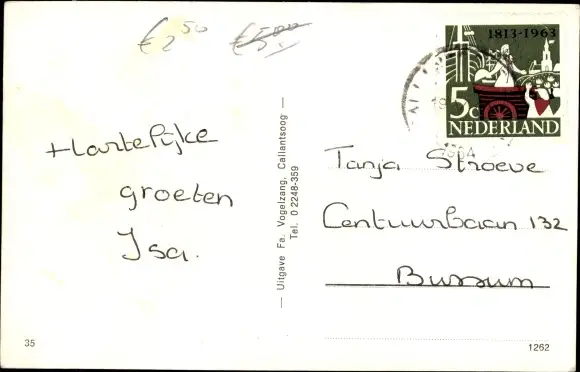 € 2⁵⁰ €5,00
1813-1963
5c
NEDERLAND
Hartelijke
groeten
Isa.
— Uitgave Fa. Vogelzang, Callantsoog —
Tel. 0 2248-359
Tanja Stroeve
Centuurbaan 132
Bussum
35
1262